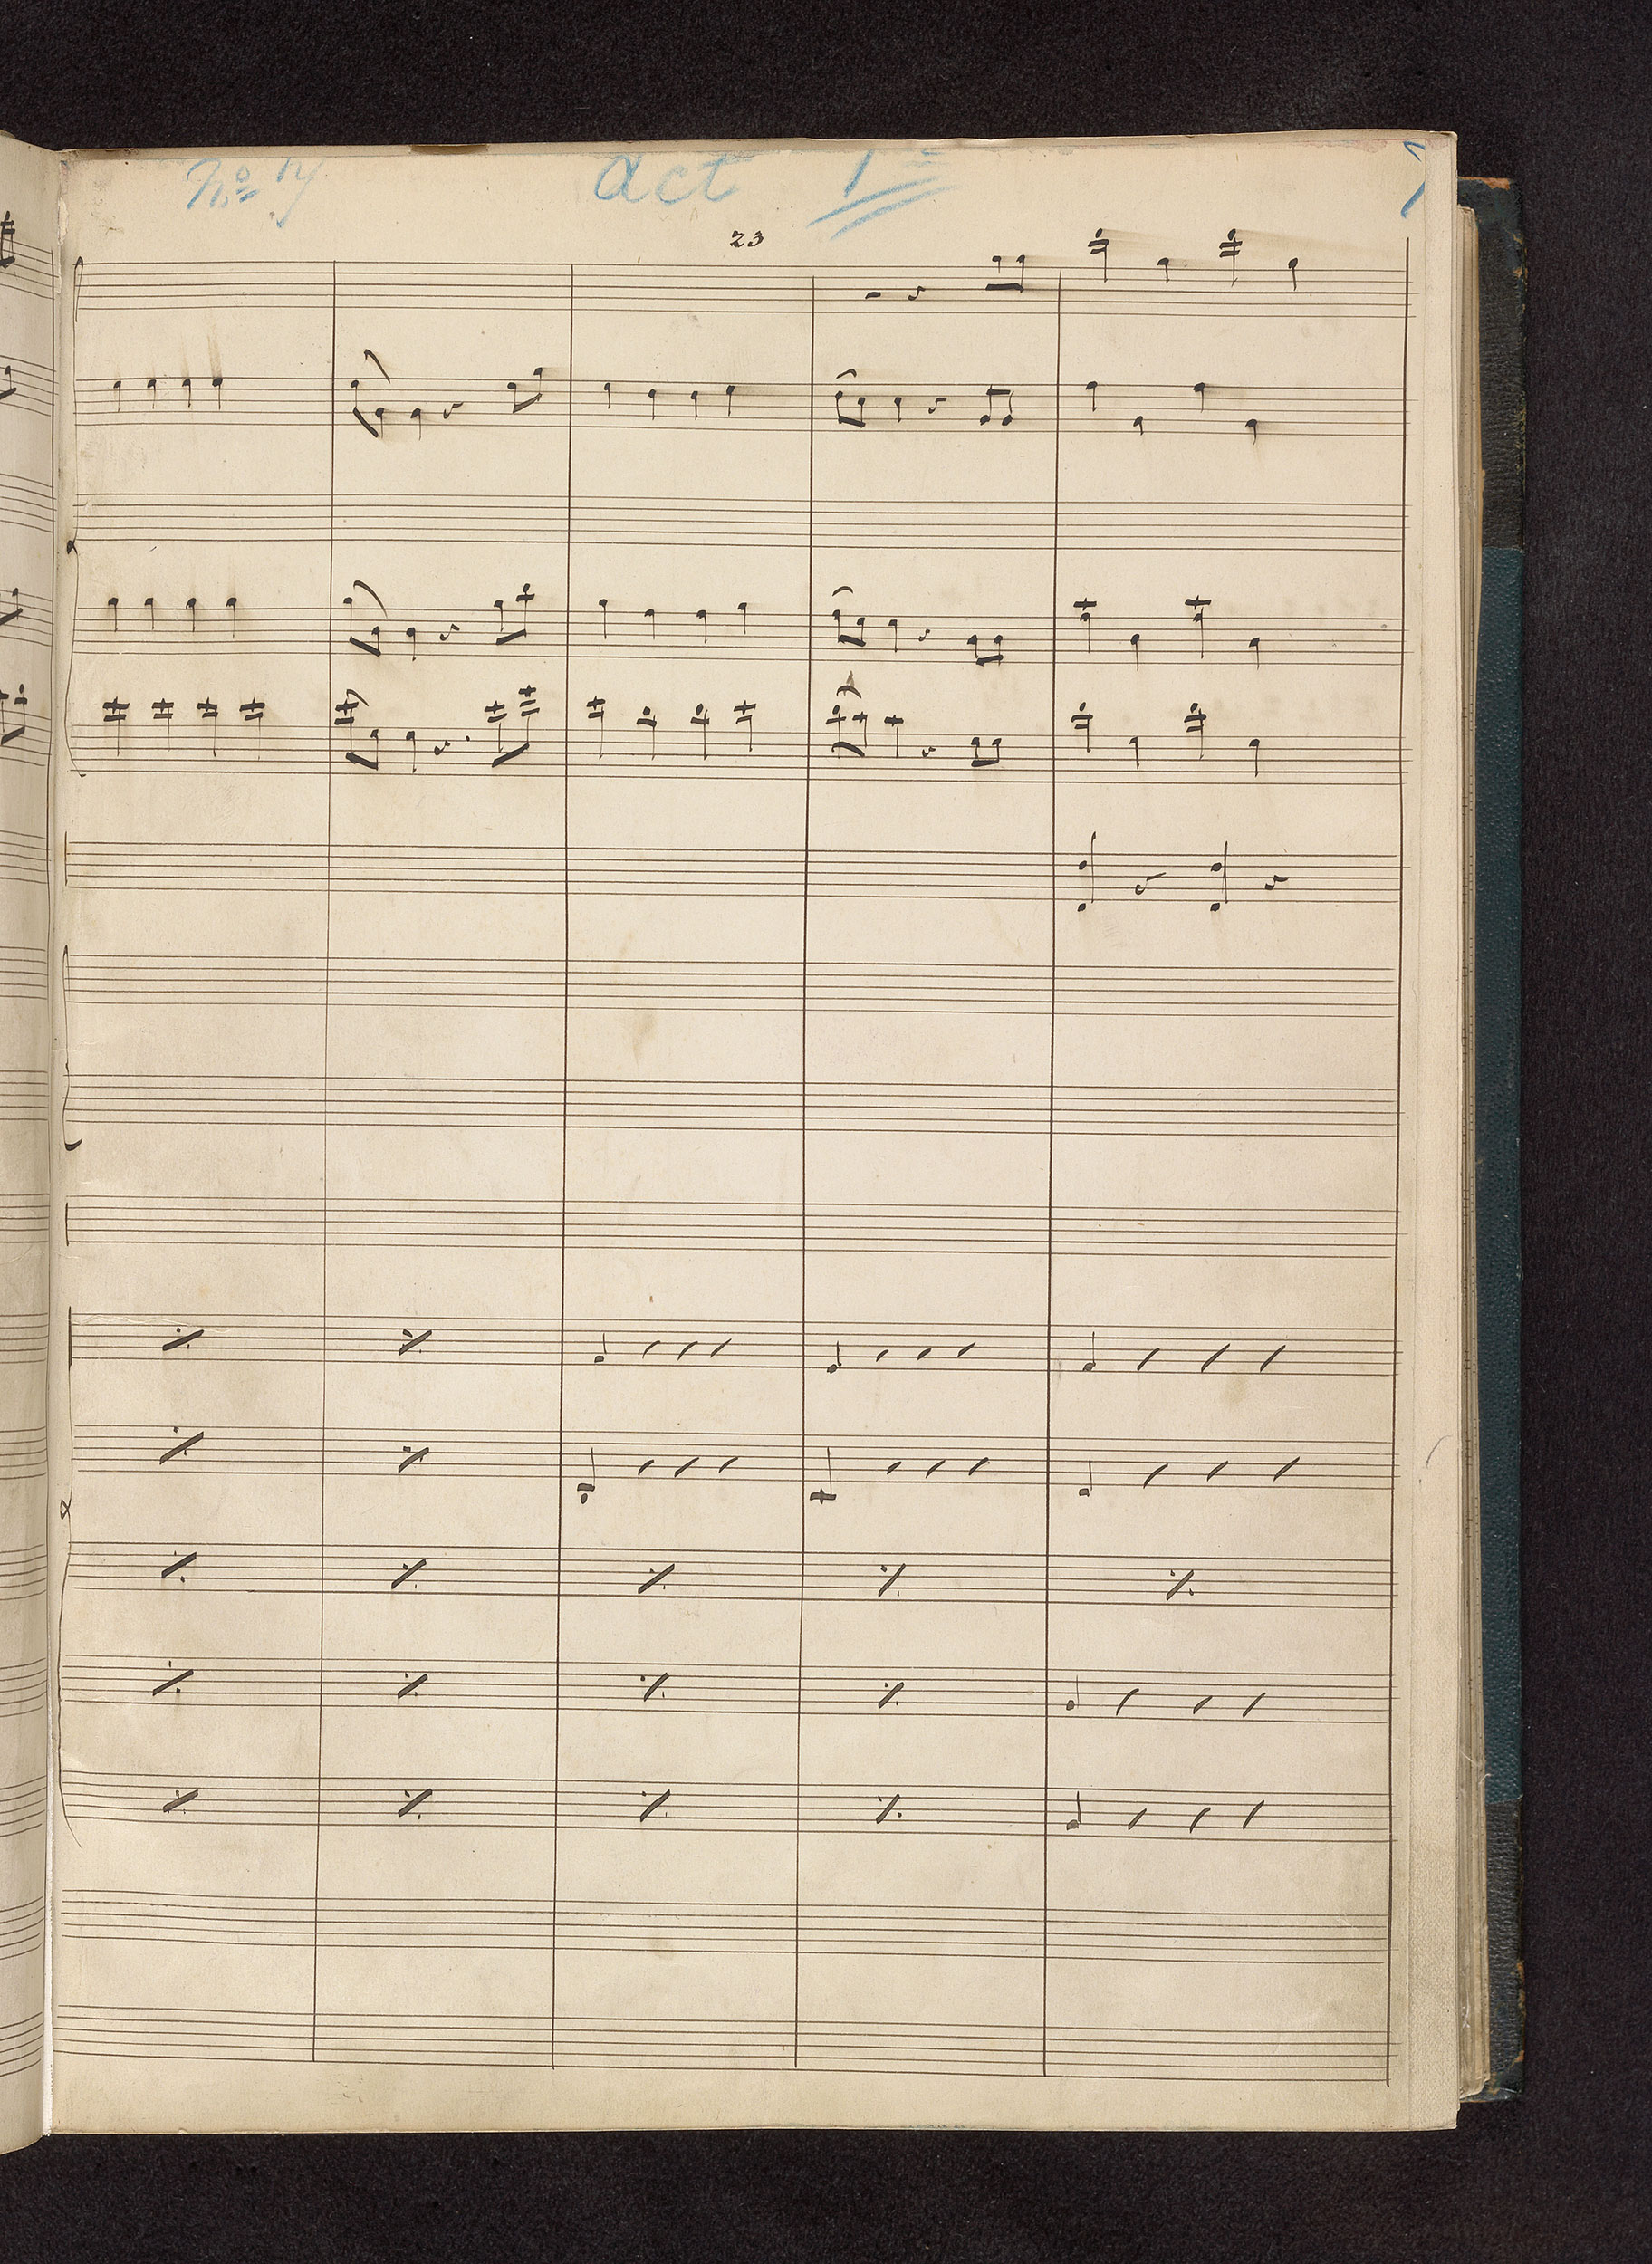 No 14 act 1
23